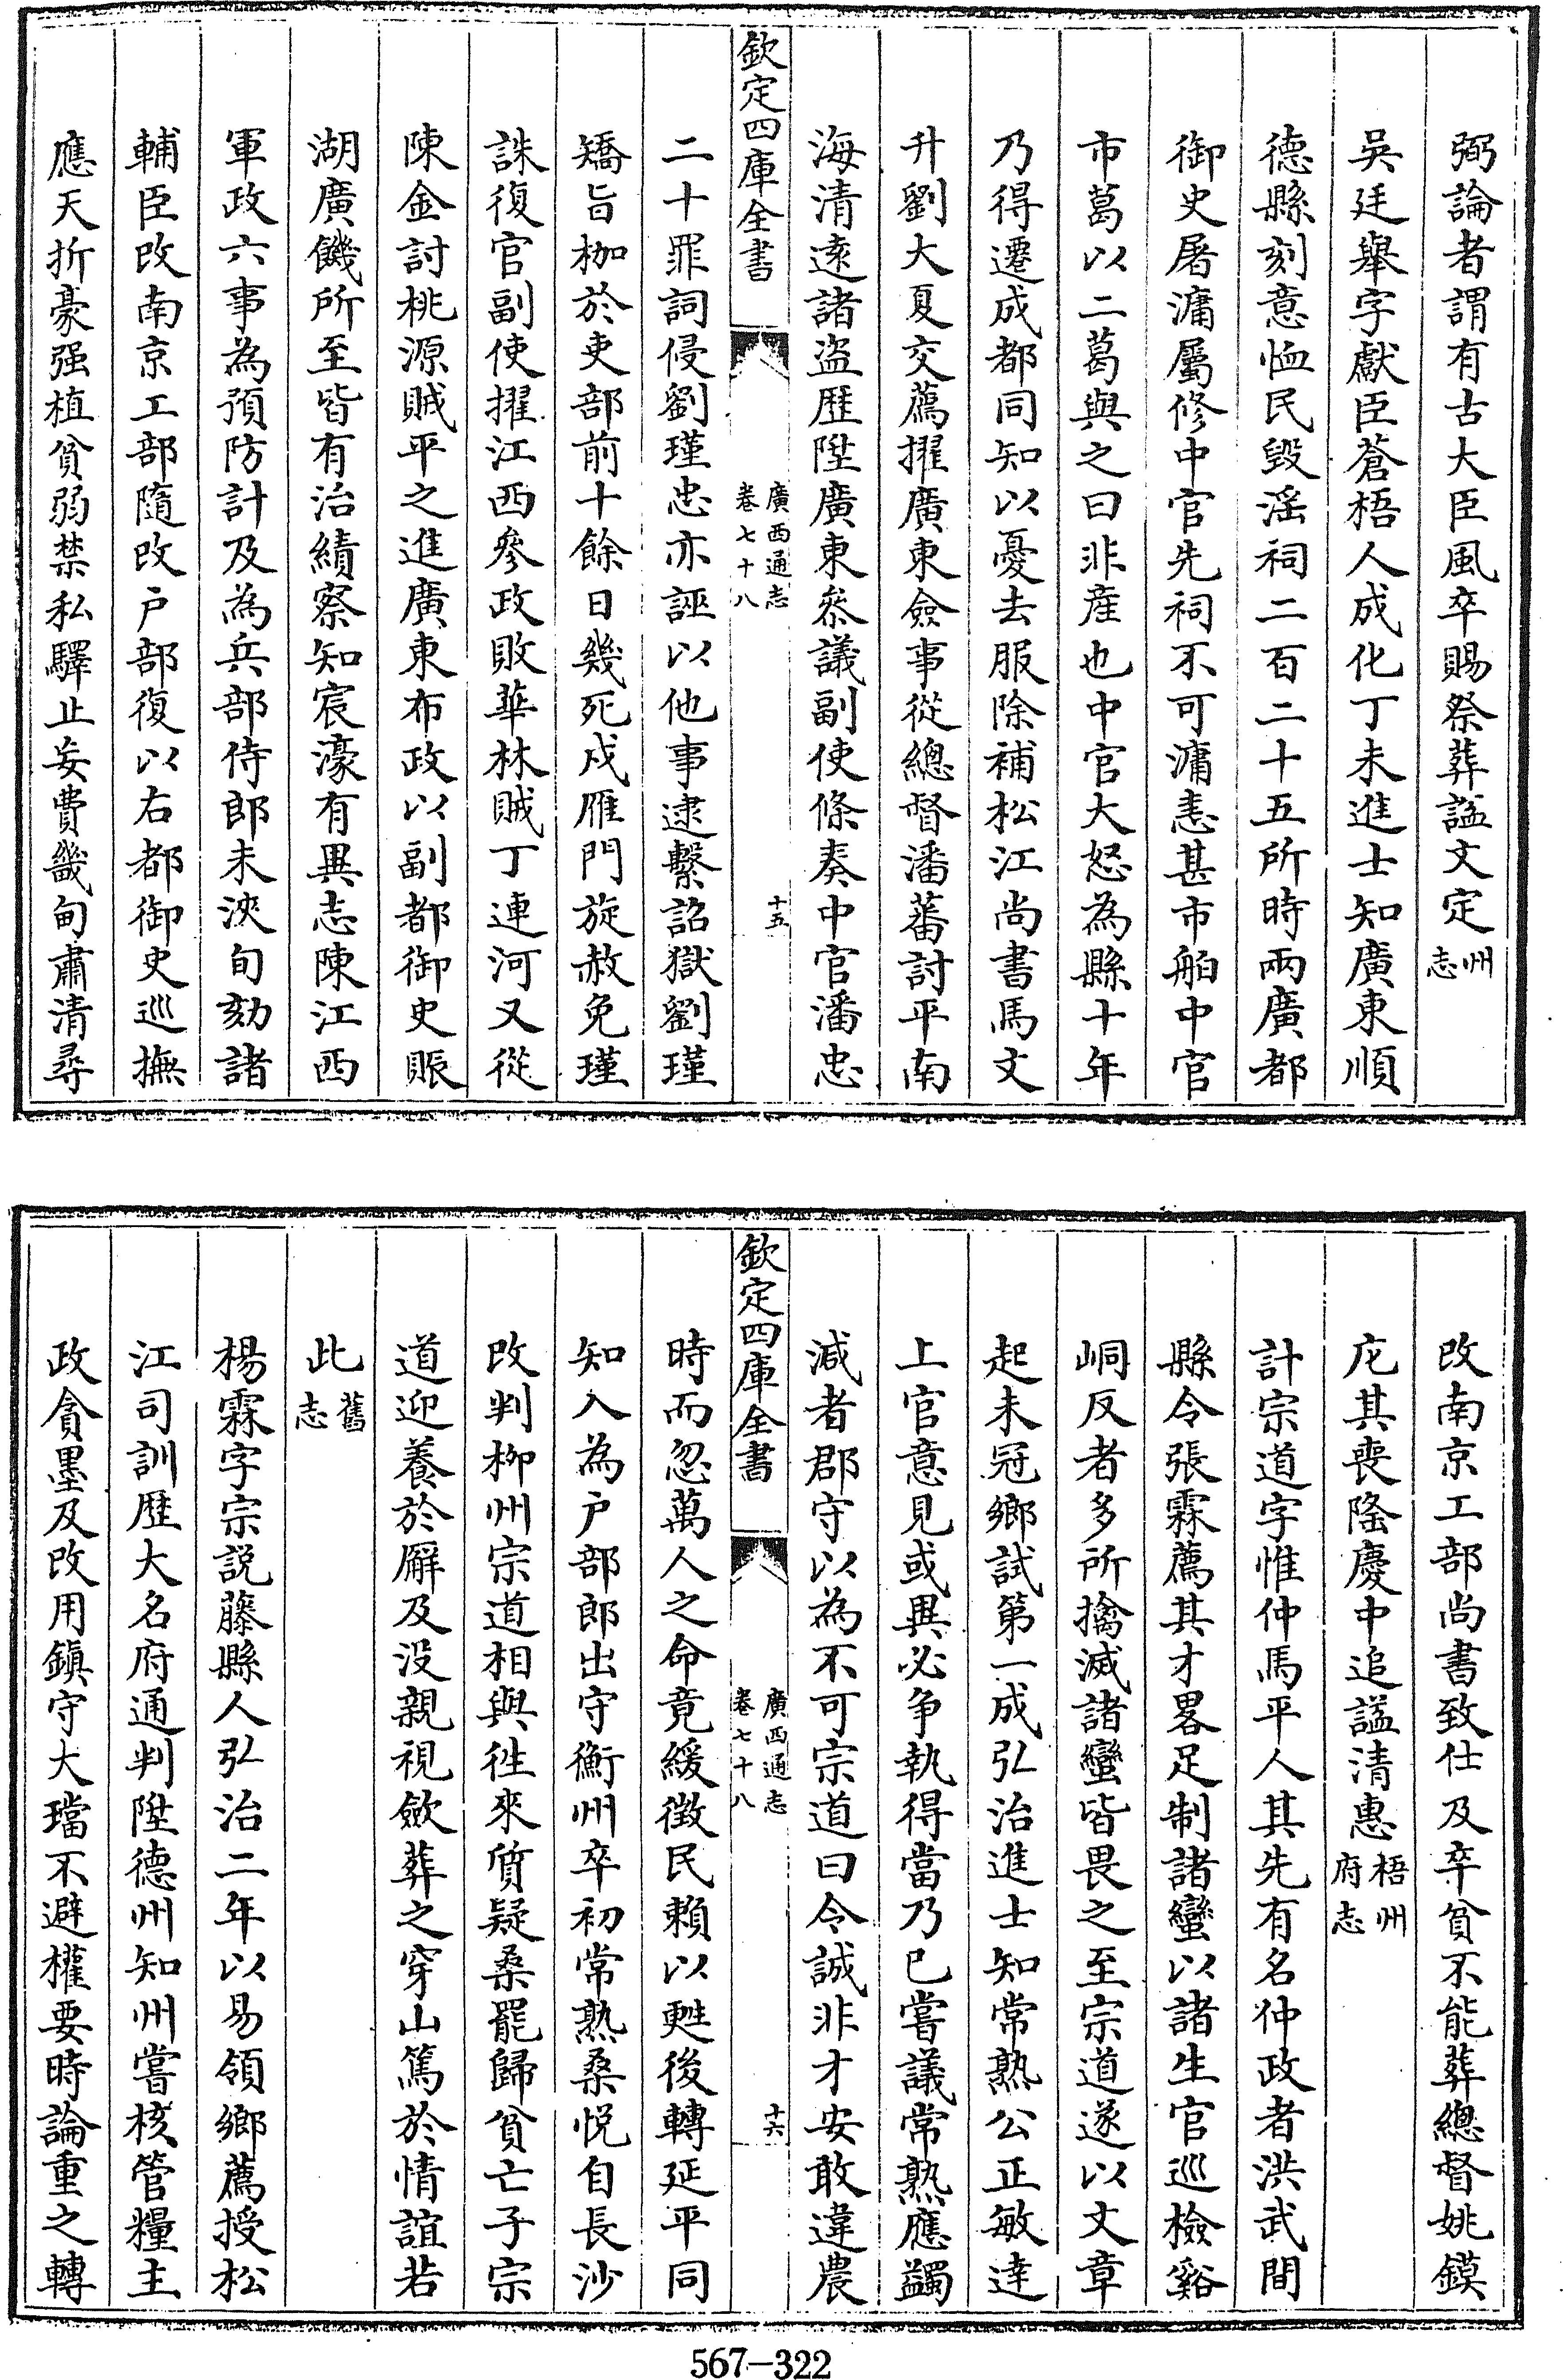 弼論者謂有古大臣風卒賜祭葬諡文定州志
吳廷舉字獻臣蒼梧人成化丁未進士知廣東順
德縣刻意恤民毀滛祠二百二十五所時兩廣都
御史屠滽屬修中官先祠不可滽恚甚市舶中官
市葛以二葛與之曰非産也中官大怒為縣十年
乃得遷成都同知以憂去服除補松江尚書馬文
升劉大夏交薦擢廣東僉事從總督潘蕃討平南
海清遠諸盜歷陞廣東叅議副使條奏中官潘忠
欽定四庫全書
廣西通志
卷七十八
十五
二十罪詞侵劉瑾忠亦誣以他事逮繫詔獄劉瑾
矯旨枷於吏部前十餘日幾死戍雁門旋赦免瑾
誅復官副使擢江西參政敗華林賊丁連河又從
陳金討桃源賊平之進廣東布政以副都御史賑
湖廣饑所至皆有治績察知宸濠有異志陳江西
軍政六事為預防計及為兵部侍郎未浹旬劾諸
輔臣改南京工部隨改户部復以右都御史巡撫
應天折豪强植貧弱禁私驛止妄費畿甸肅清尋
改南京工部尚書致仕及卒貧不能葬總督姚鏌
庀其喪隆慶中追諡清惠梧州府志
計宗道字惟仲馬平人其先有名仲政者洪武間
縣令張霖薦其才畧足制諸蠻以諸生官巡檢谿
峒反者多所擒滅諸蠻皆畏之至宗道遂以文章
起未冠鄉試第一成弘治進士知常熟公正敏達
上官意見或異必争執得當乃已嘗議常熟應蠲
減者郡守以為不可宗道曰令誠非才安敢違農
欽定四庫全書
廣西通志
卷七十八
十六
時而忽萬人之命竟緩徵民賴以甦後轉延平同
知入為户部郎出守衡州卒初常熟桑悅自長沙
改判柳州宗道相與徃來質疑桑罷歸貧亡子宗
道迎養於廨及没親視斂葬之穿山篤於情誼若
此舊志
楊霖字宗説藤縣人弘治二年以易領鄉薦授松
江司訓歷大名府通判陞德州知州嘗核管糧主
政貪墨及改用鎮守大璫不避權要時論重之轉
567—322